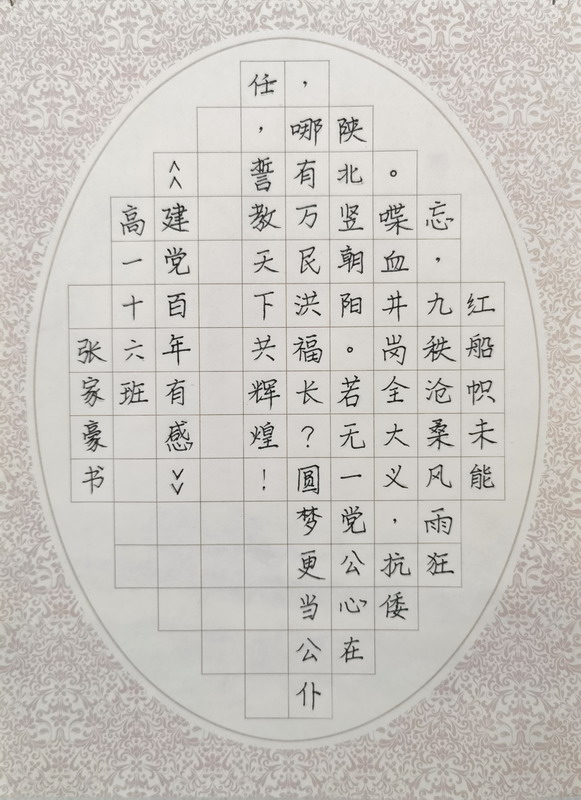 红船帜未能
忘，九秩沧桑风雨狂
。喋血井岗全大义，抗倭
陕北竖朝阳。若无一党公心在
，哪有万民洪福长？圆梦更当公仆
任，誓教天下共辉煌！
《建党百年有感》
高一十六班
张家豪书